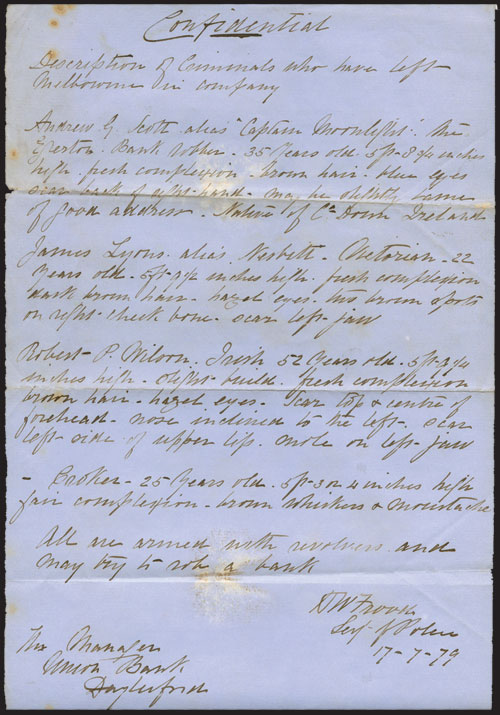 Confidential
Description of Criminals who have left
Melbourne in company
Andrew G. Scott alias "Captain Moonlight". the
Egerton Bank robber. 35 Years old. 5ft-8 3/4 inches
high. fresh complexion. brown hair. blue eyes
scar back of right hand. may be slightly lame
of good address. Native of Co Down Ireland
James Lyons alias Nesbitt - Victorian - 22
Years old - 5ft 7 1/2 inches high. fresh complexion
dark brown hair - hazel eyes. two brown spots
on right cheek bone - scar left jaw
Robert P. Wilson. Irish 52 Years old - 5ft-
inches high - slight build. fresh complexion
brown hair - hazel eyes. Scar top & centre of
forehead - nose inclined to the left. scar
left side of upper lip. mole on left jaw
- 25 Years old - 5ft-3 or 4 inches high
fair complexion - brown whiskers & moustache
All are armed with revolvers and
may try to rob a bank
Sergt of Police
17-7-79
The Manager
Union Bank
Daylesford